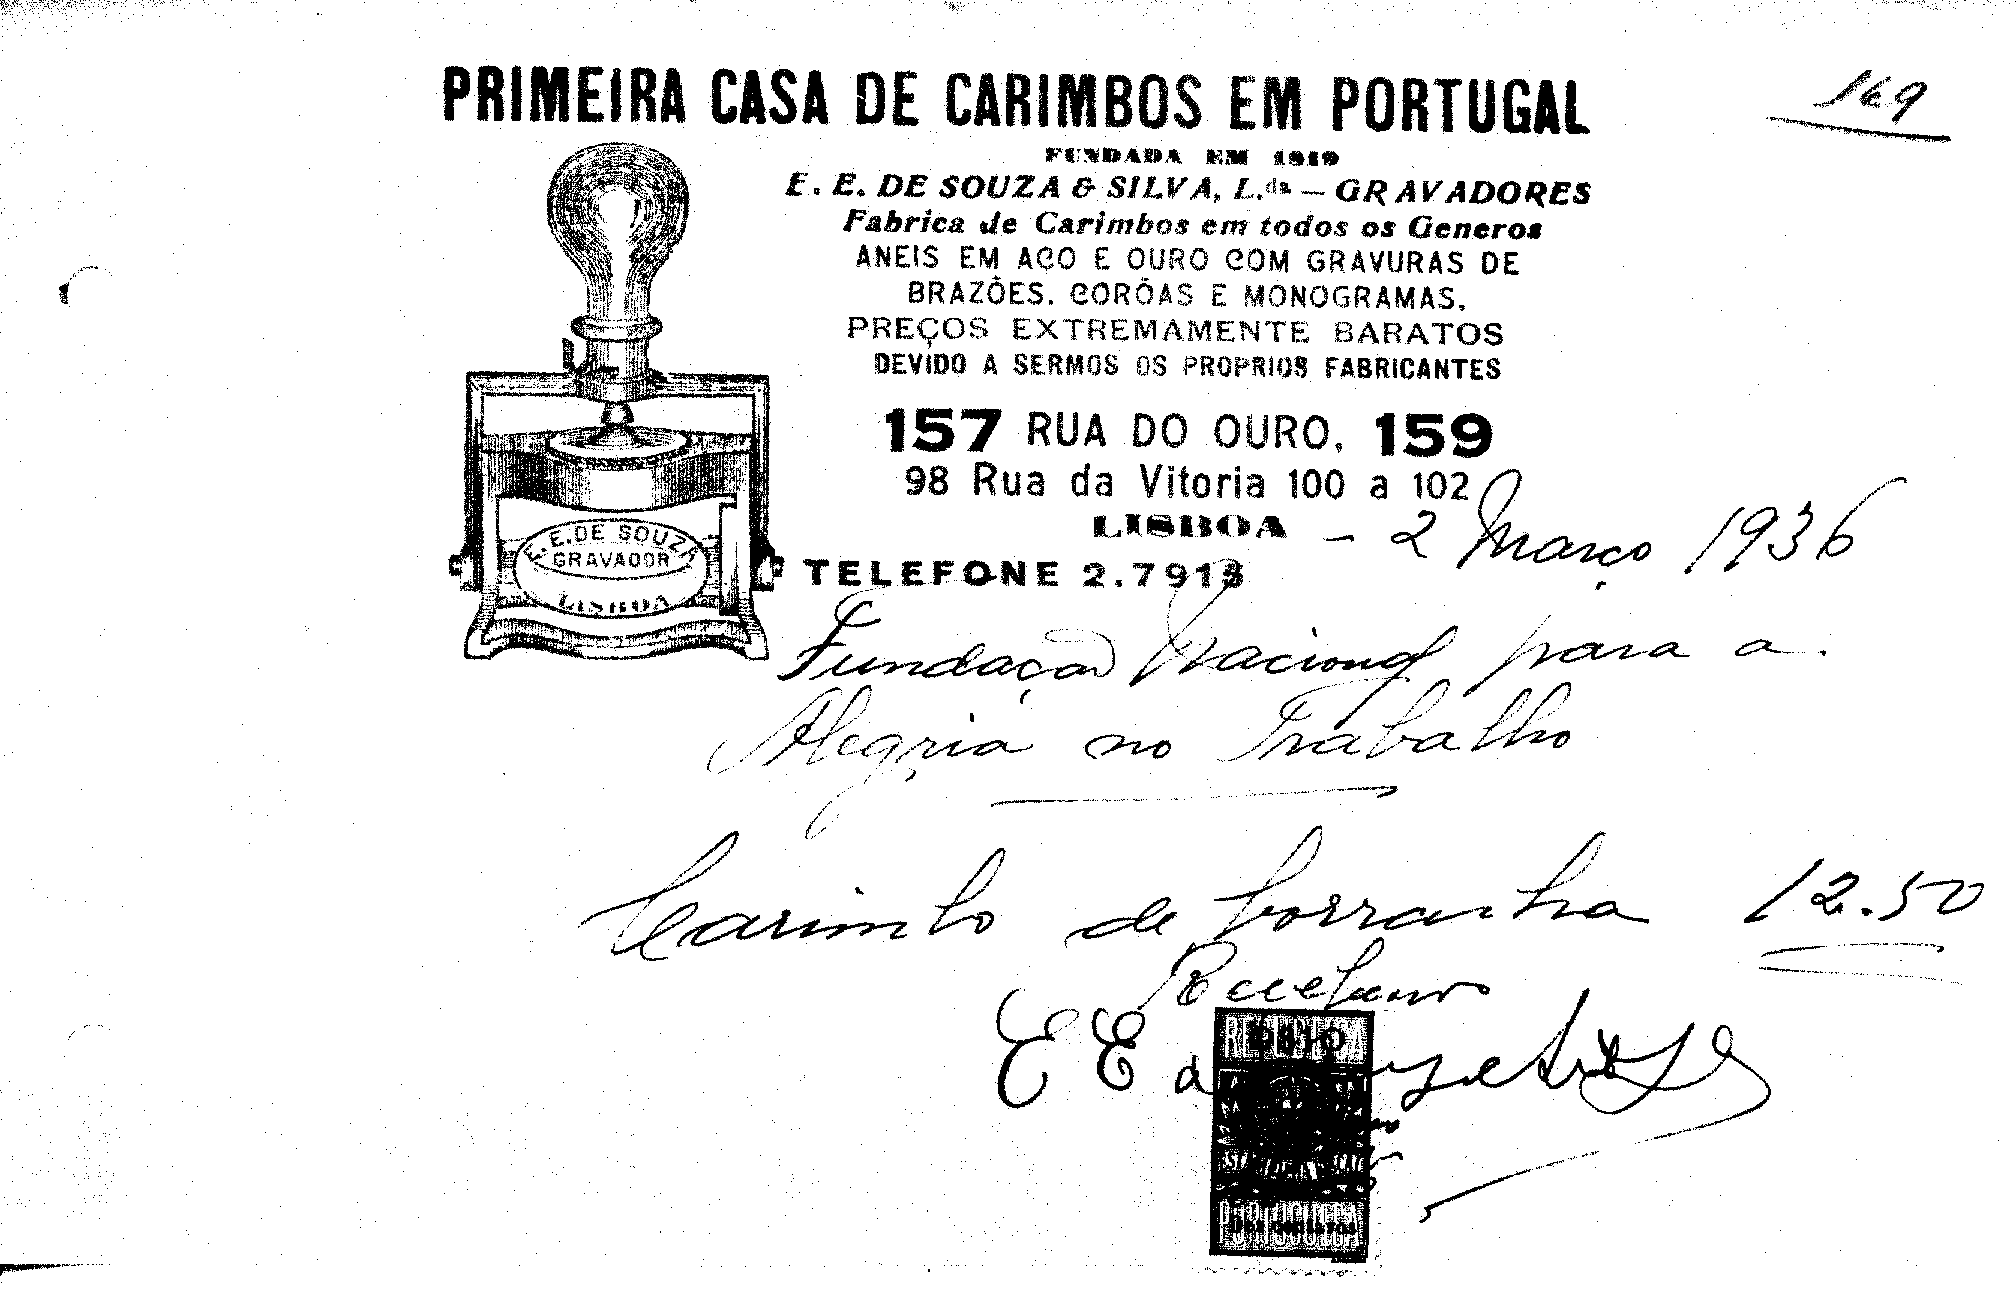 PRIMEIRA CASA DE CARIMBOS EM PORTUGAL
169
FUNDADA EM 1919
E. E. DE SOUZA & SILVA, L.da — GRAVADORES
Fabrica de Carimbos em todos os Generos
ANEIS EM AÇO E OURO COM GRAVURAS DE
BRAZÕES, CORÔAS E MONOGRAMAS,
PREÇOS EXTREMAMENTE BARATOS
DEVIDO A SERMOS OS PROPRIOS FABRICANTES
157 RUA DO OURO, 159
98 Rua da Vitoria 100 a 102
LISBOA - 2 Março 1936
E. E. DE SOUZA
GRAVADOR
LISBOA
TELEFONE 2.7913
Fundação Nacional para a
Alegria no Trabalho
Carimbo de borracha 12.50
Recebemos
E E d
PORTUGAL